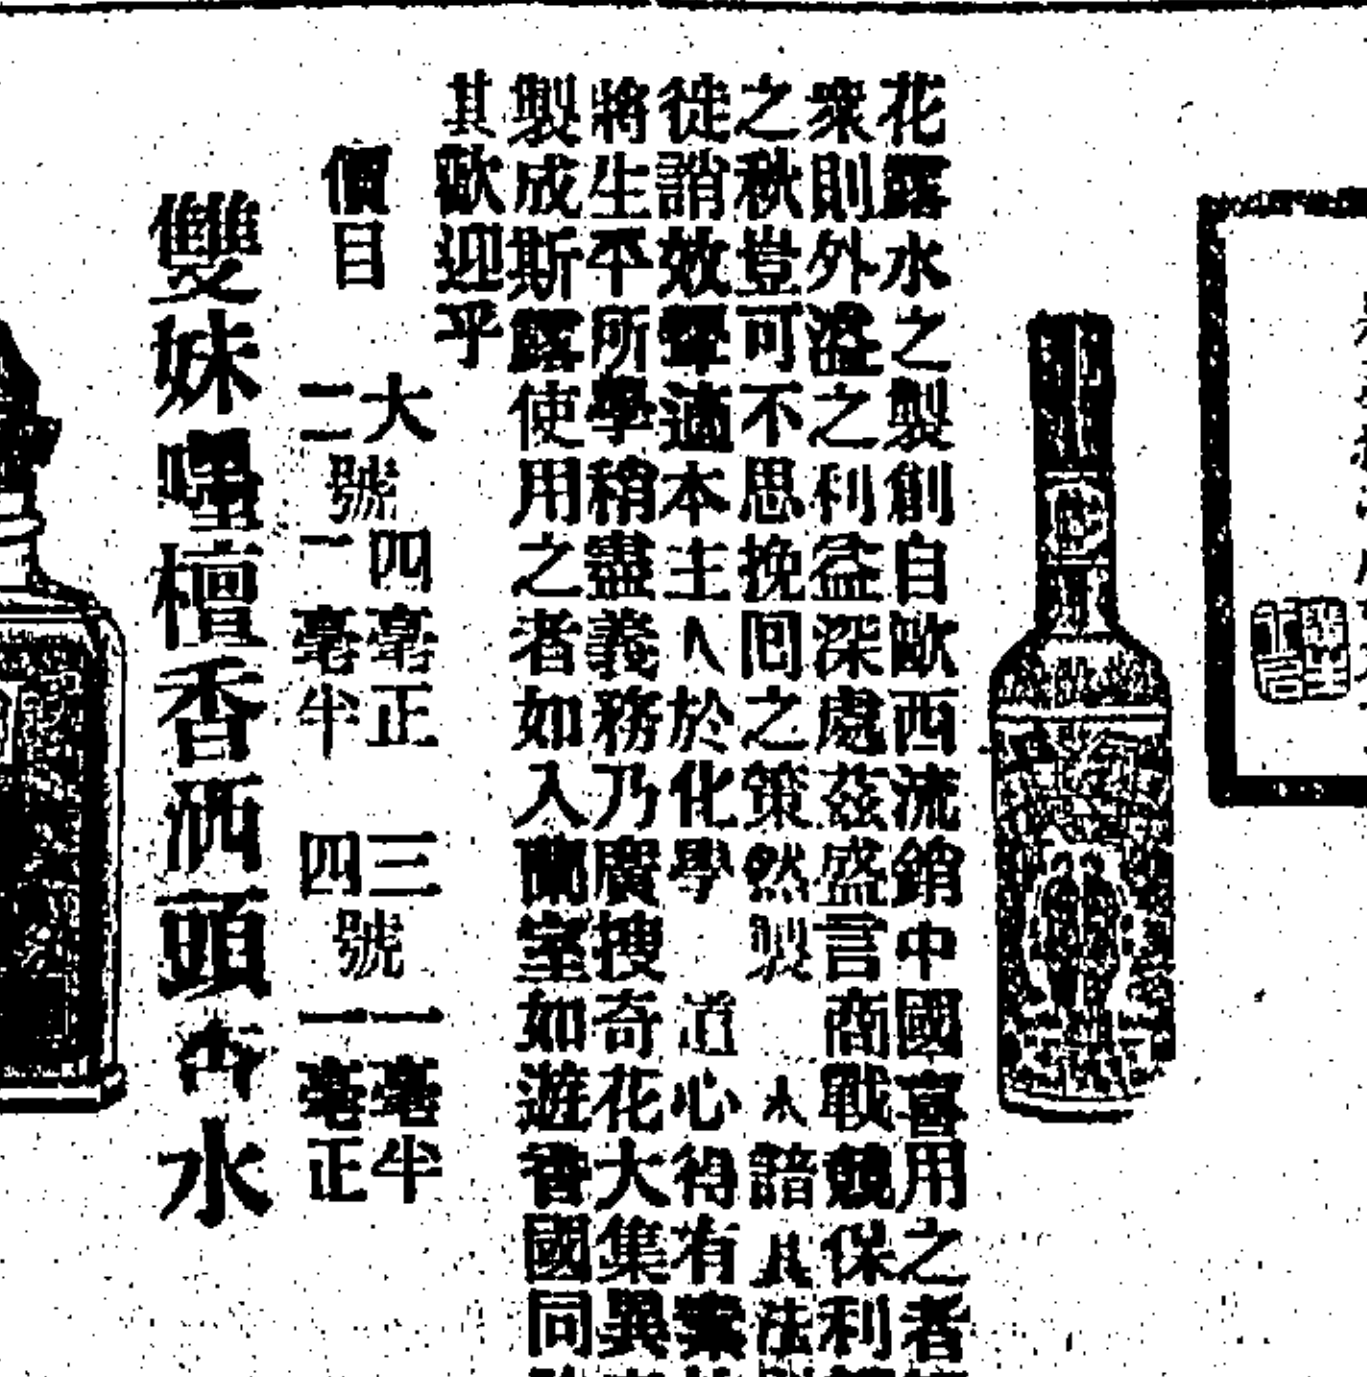 花露水之製創自歐西流銷中國喜用之者
衆則外溢之利益深處茲盛言商戰競保利
之秋豈可不思挽回之策然製 未諳其法
徙誚效顰適本主人於化學 道心得有案
將生平所學稍盡義務乃廣搜奇花大集異
製成斯露使用之者如入蘭室如遊香國同
其歐迎乎
價目
大號四毫正 三號一毫半
二號二毫半 四號一毫正
雙妹嚜檀香洒頭香水